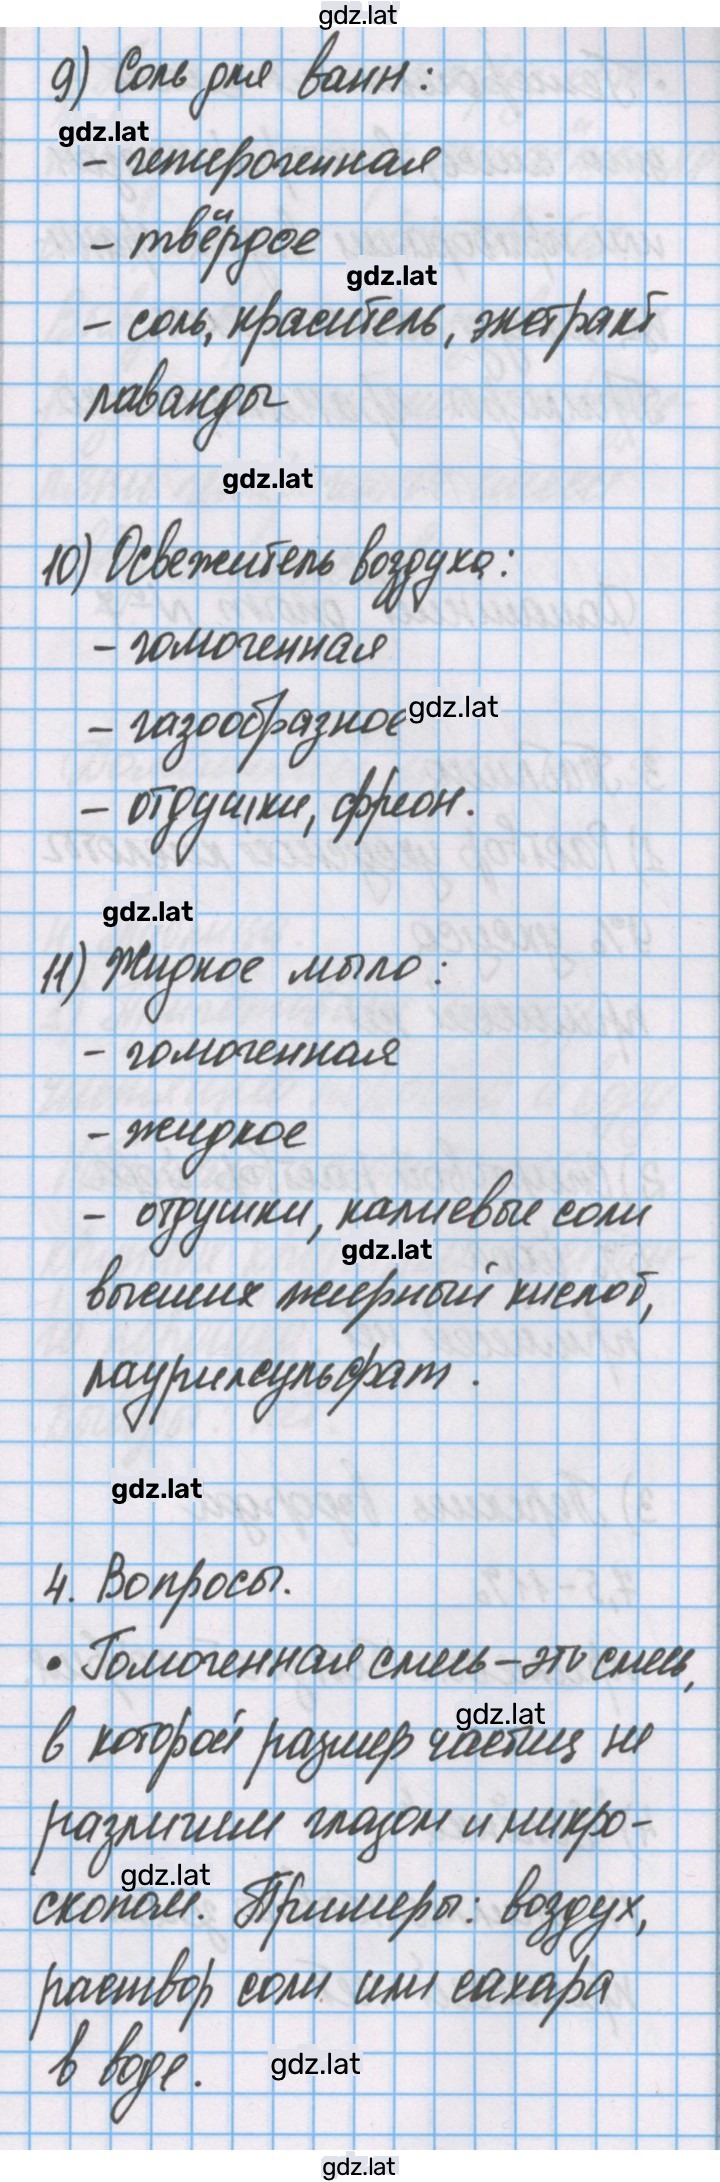 gdz.lat
9) Соль для ванн:
gdz.lat
- гетерогенная
- твёрдое
gdz.lat
- соль, краситель, экстракт
лаванды
gdz.lat
10) Освежитель воздуха:
- гомогенная
- газообразное
gdz.lat
- отдушки, фреон.
gdz.lat
11) Жидкое мыло:
- гомогенная
- жидкое
- отдушки, калиевые соли
gdz.lat
высших жирный кислот,
лаурилсульфат.
gdz.lat
4. Вопросы.
• Гомогенная смесь – это смесь,
gdz.lat
в которой размер частиц не
различим глазом и микро-
gdz.lat
скопом. Примеры: воздух,
раствор соли или сахара
в воде.
gdz.lat
gdz.lat